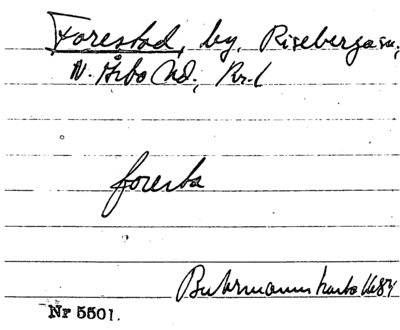 Forestad, by, Riseberga sn,
N. Åsbo hd, Kr. l
foresta
Buhrmanns karta 1684
Nr 5501.